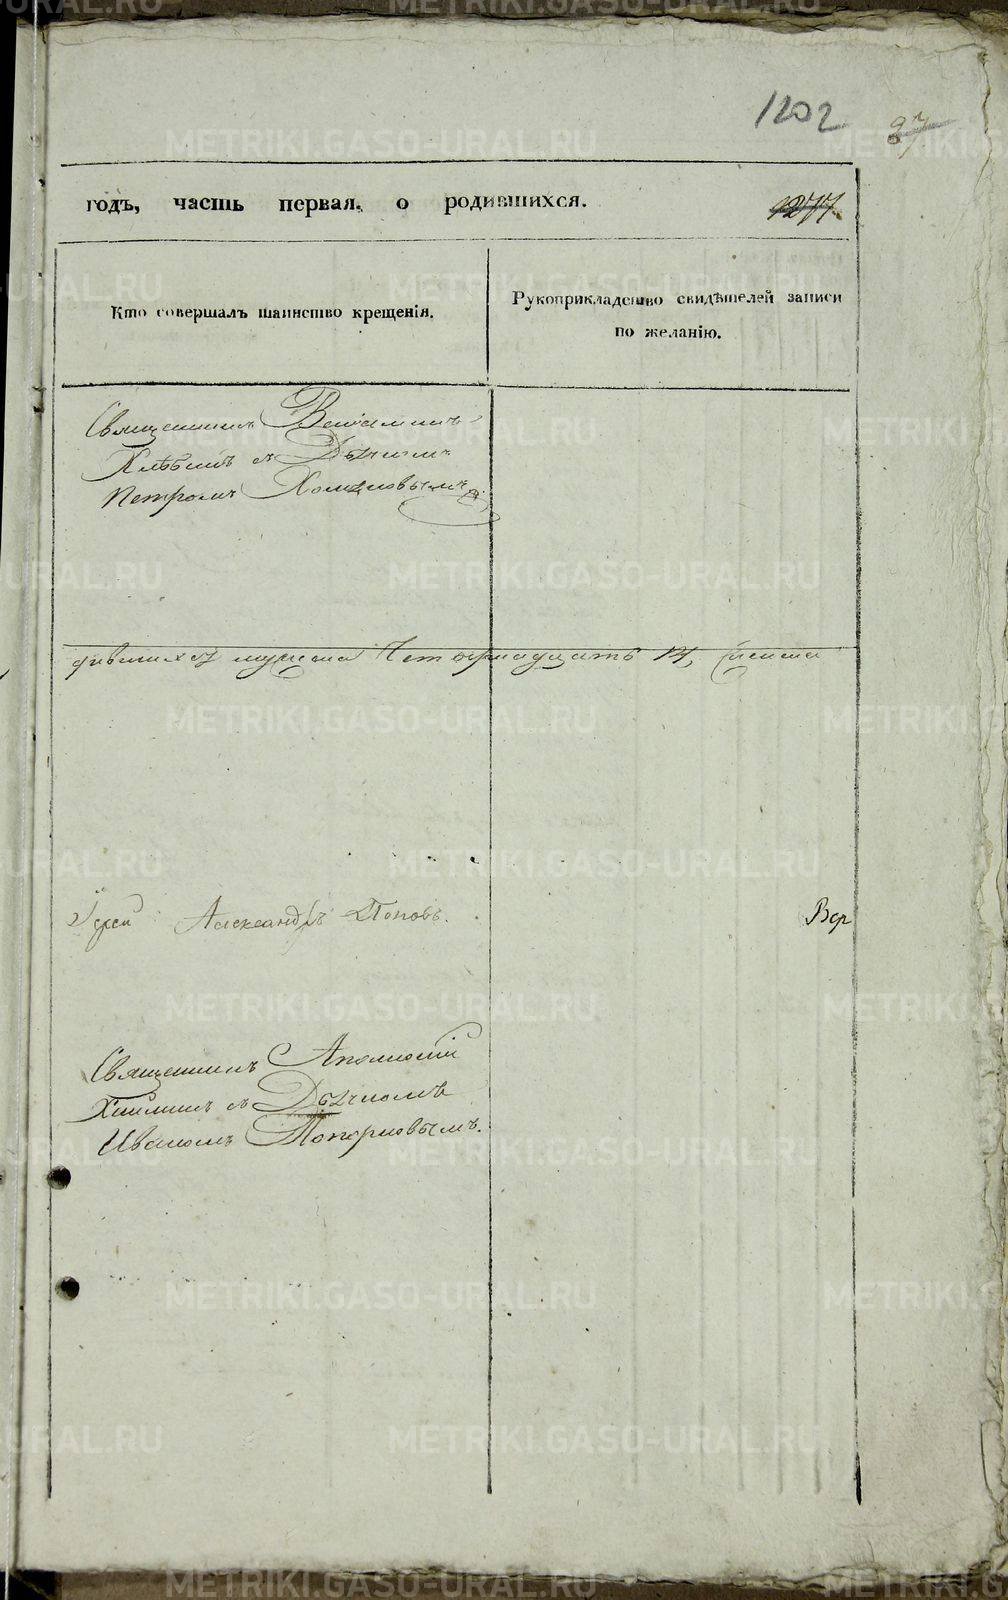 1202 37
годъ, часть первая, о родившихся. 1277
Кто совершалъ таинство крещенія.
Рукоприкладство свидѣтелей записи
по желанію.
Священникъ Веніаминъ
Хлѣбинъ съ Дьячкомъ
Петромъ
мужеска Четырнадцать 14, женска
Іерей Александръ Поповъ.
Вѣр
Священникъ Аполлоній
съ Дьячкомъ
Иваномъ Топорковымъ.
METRIKI.GASO-URAL.RU